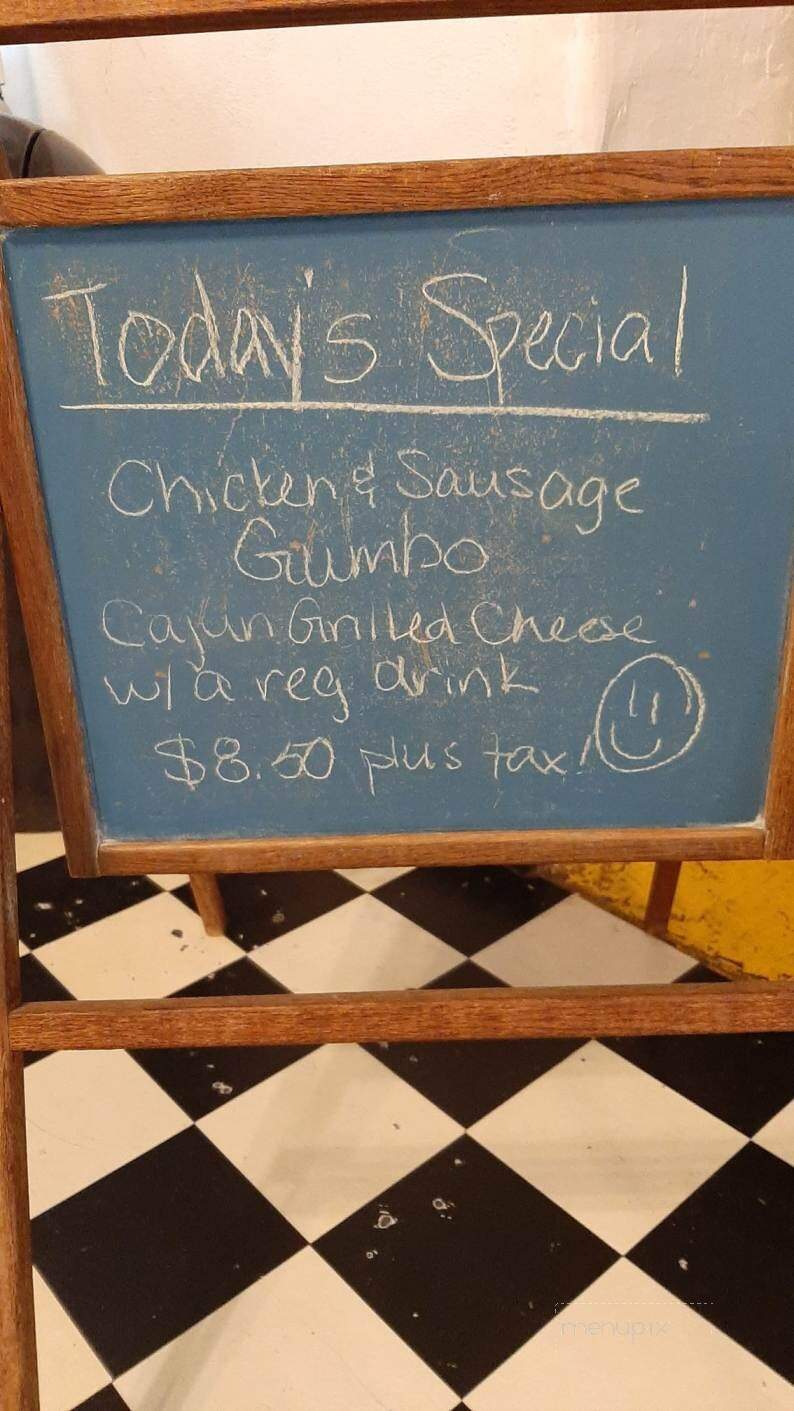 Today's Special
Chicken & Sausage
Gumbo
Cajun Grilled Cheese
w/ a reg drink
$8.50 plus tax!
menupix